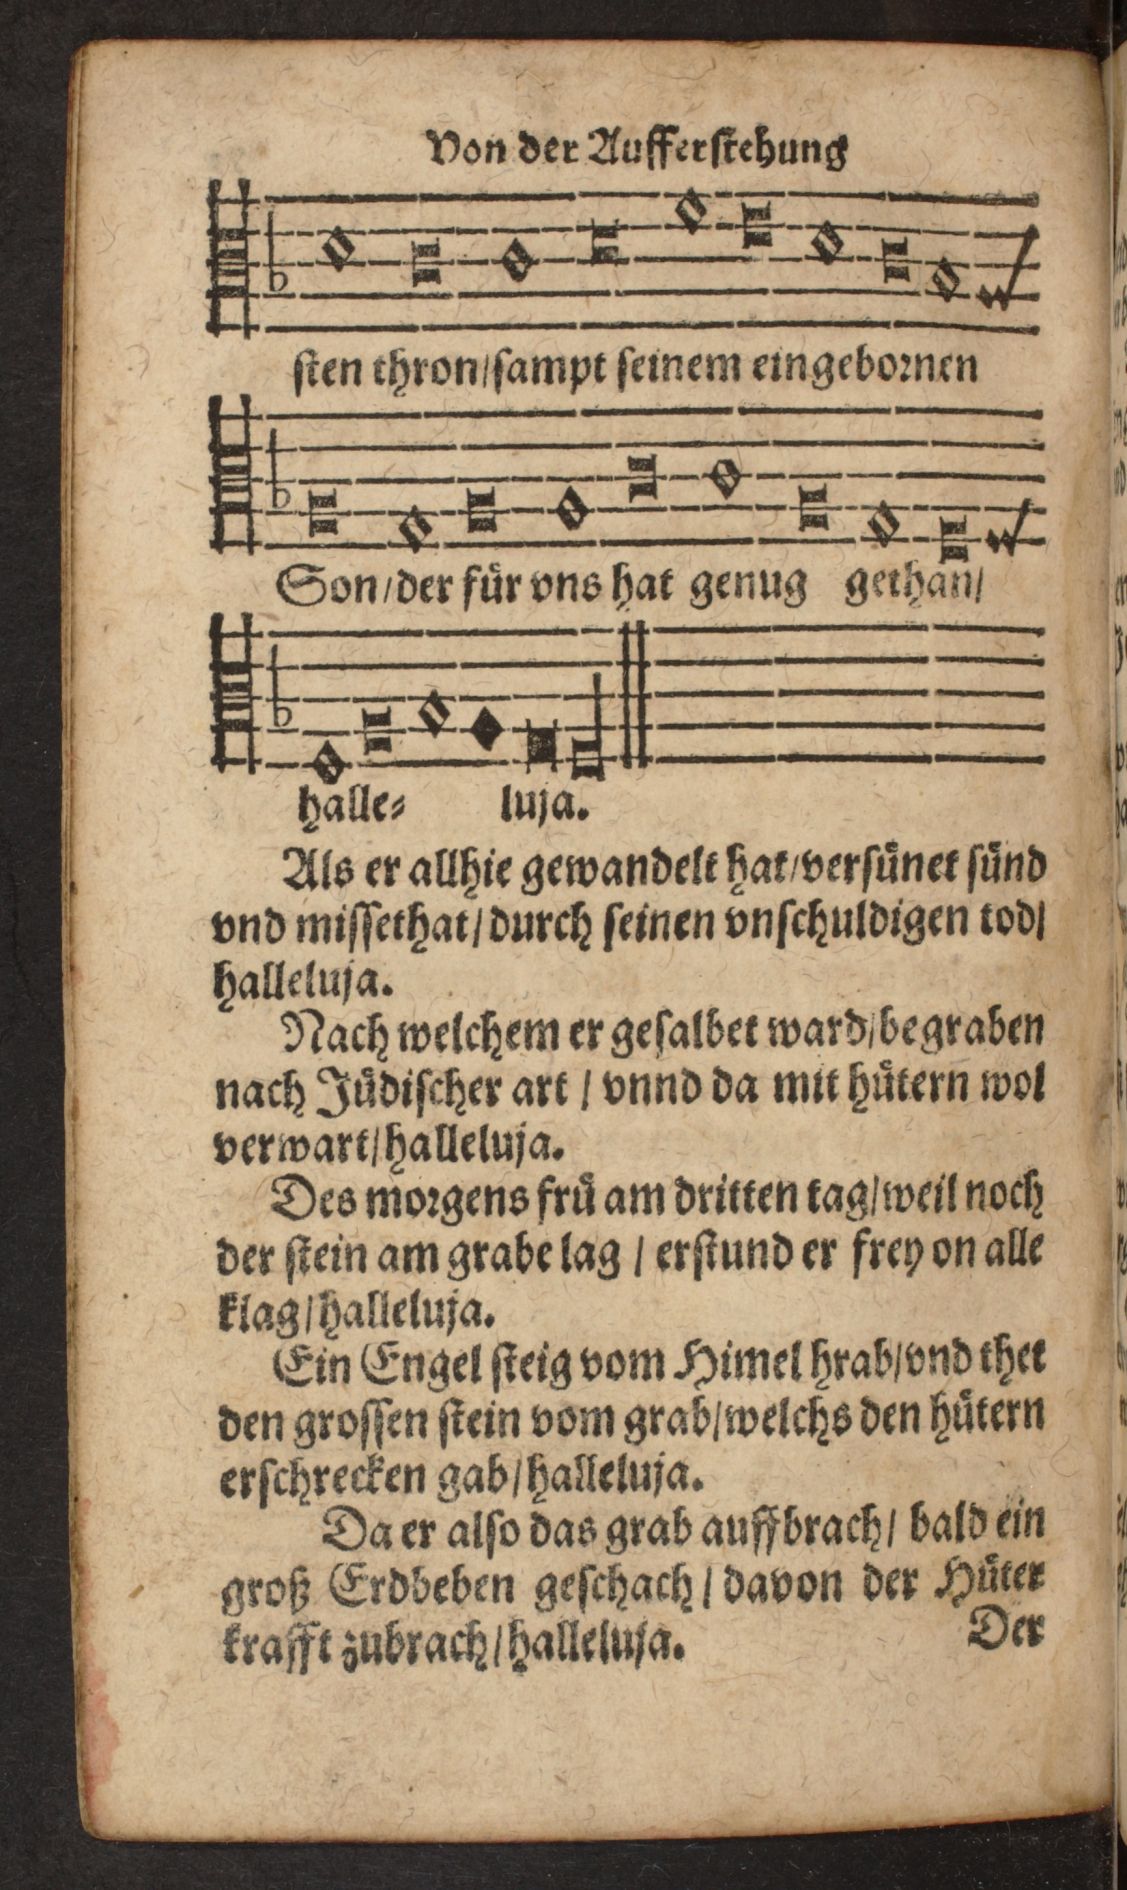 Von der Aufferstehung
sten thron/sampt seinem eingebornen
Son/der für vns hat genug gethan/
halle- luja.
Als er allhie gewandelt hat/versünet sünd
vnd missethat/durch seinen vnschuldigen tod/
halleluja.
Nach welchem er gesalbet ward/begraben
nach Jüdischer art / vnnd da mit hütern wol
verwart/halleluja.
Des morgens frü am dritten tag/weil noch
der stein am grabe lag / erstund er frey on alle
klag/halleluja.
Ein Engel steig vom Himel hrab/vnd thet
den grossen stein vom grab/welchs den hütern
erschrecken gab/halleluja.
Da er also das grab auffbrach/ bald ein
groß Erdbeben geschach/davon der Hüter
krafft zubrach/halleluja.
Der